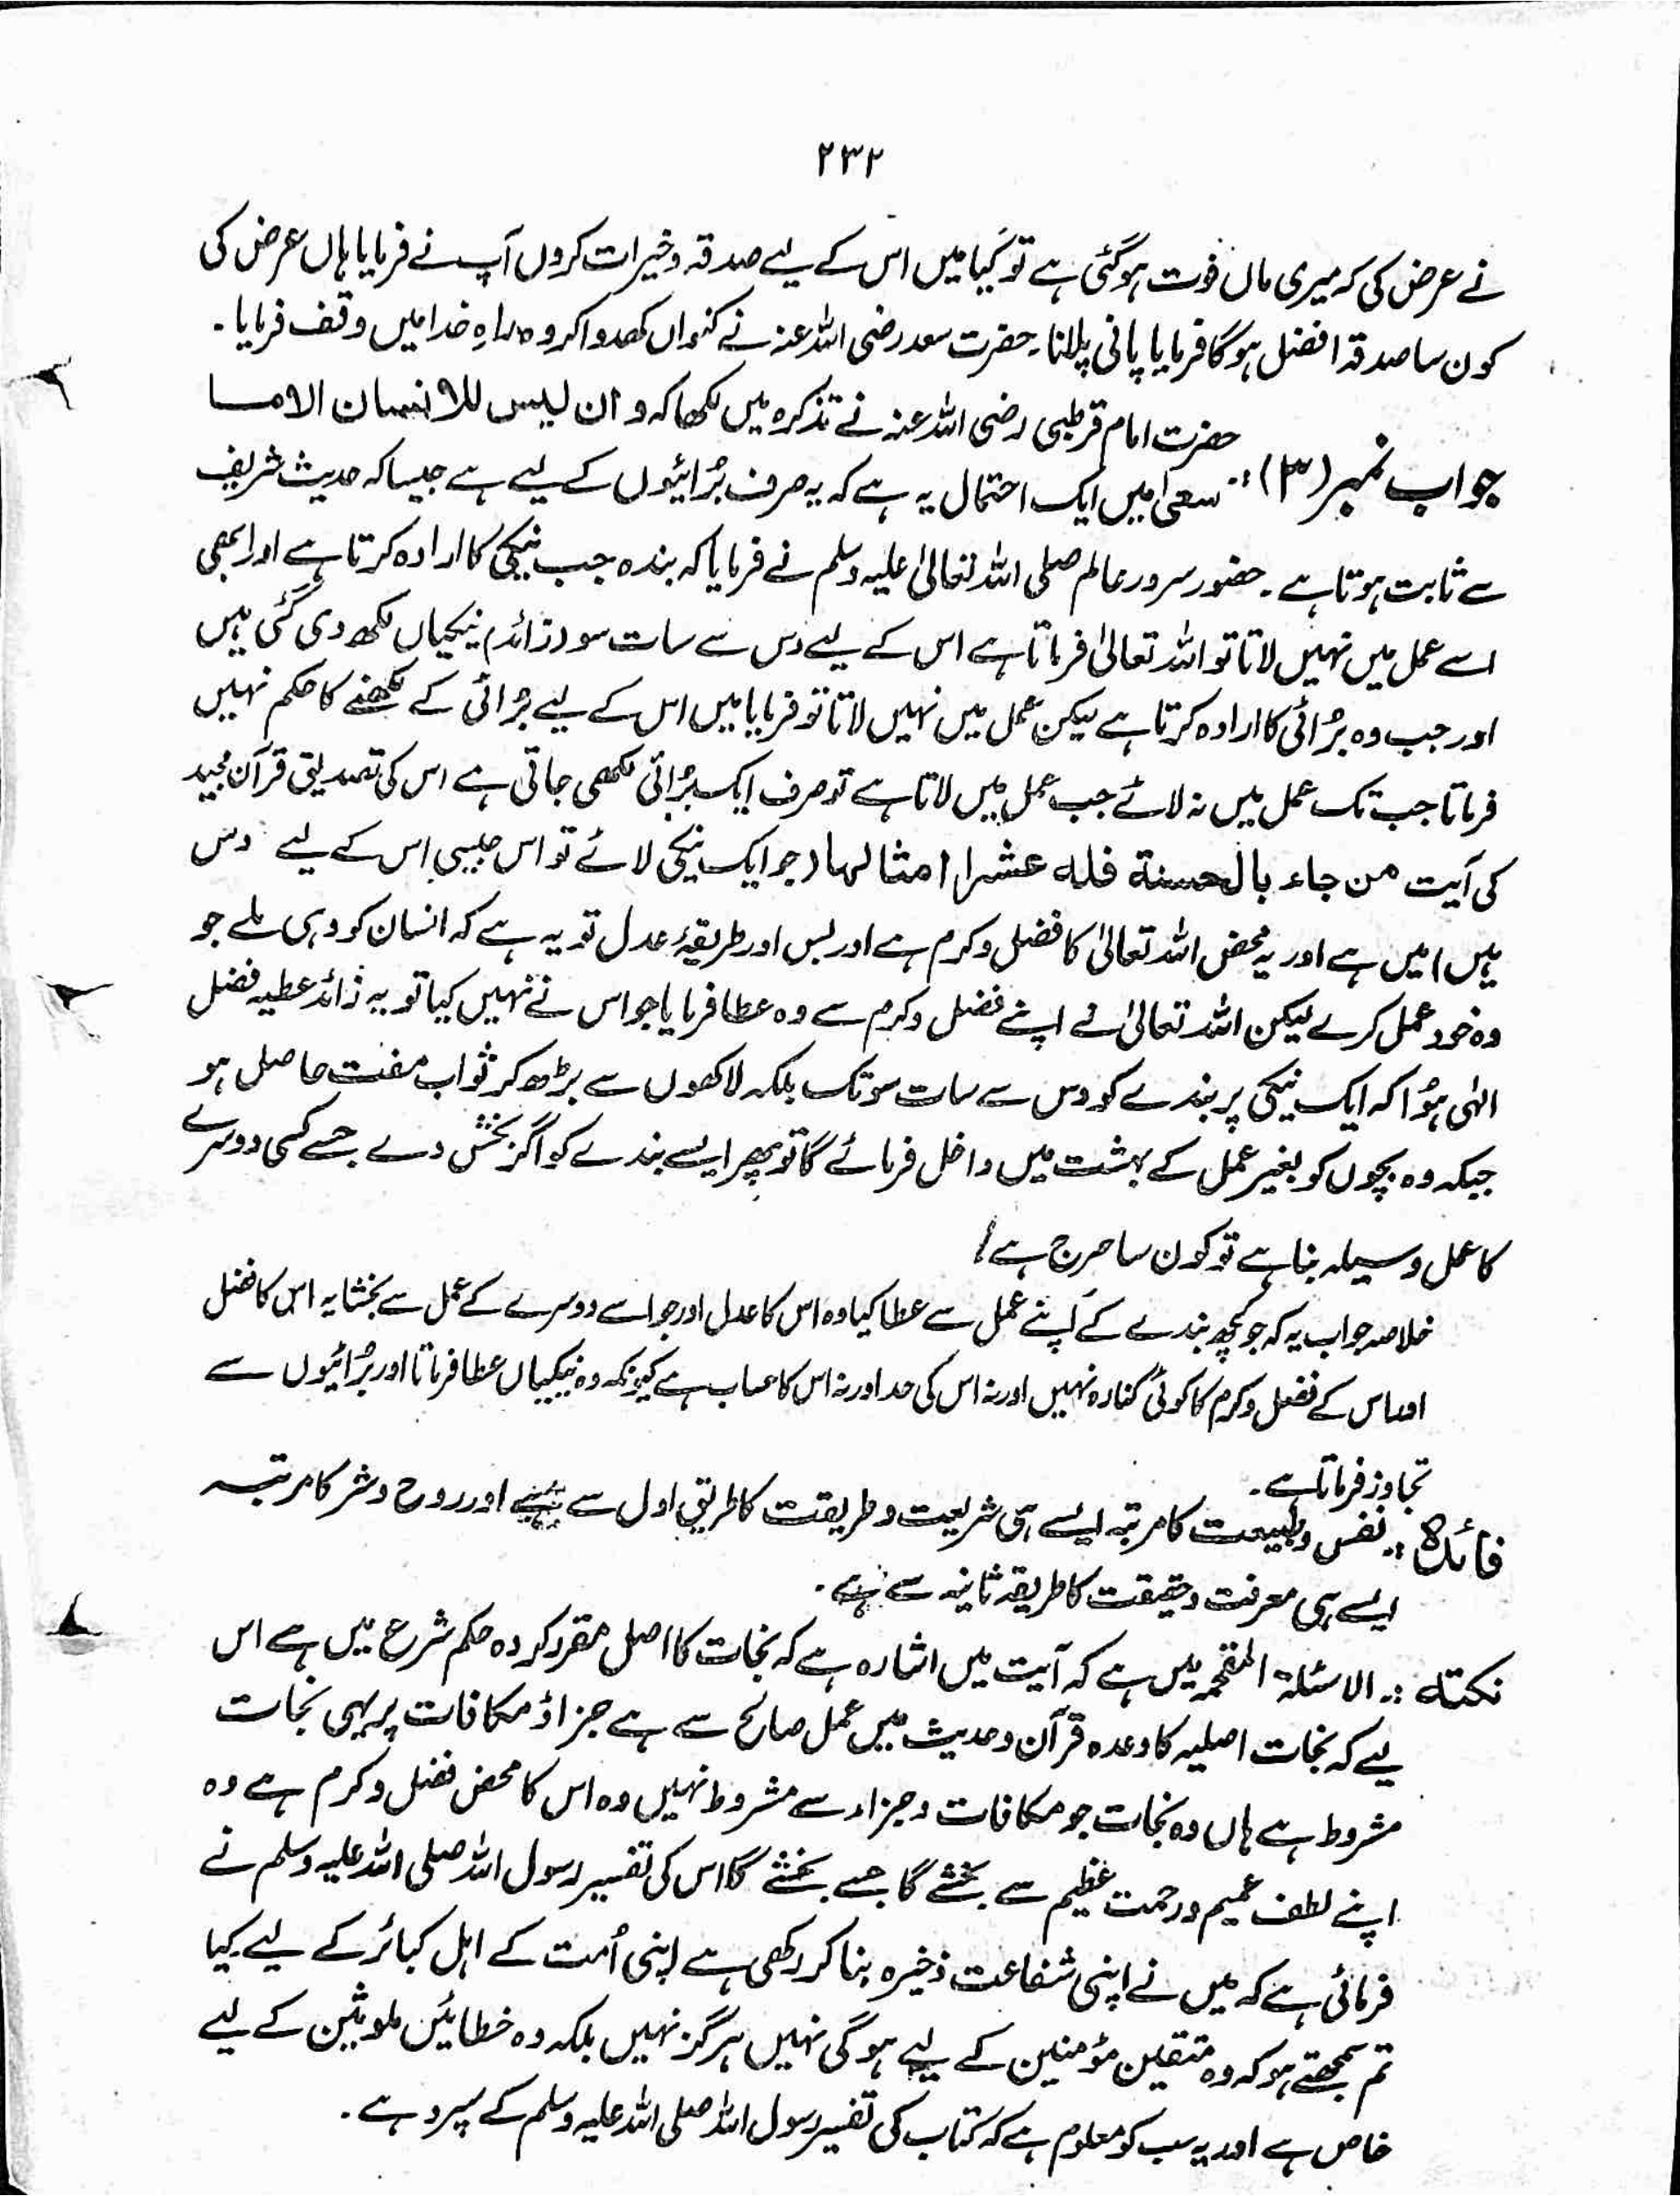 ۲۳۲
نے عرض کی کہ میری ماں فوت ہوگئی ہے تو کیا میں اس کے لیے صدقہ و خیرات کروں آپ نے فرمایا ہاں عرض کی
کون سا صدقہ افضل ہوگا فرمایا پانی پلانا۔ حضرت سعد رضی اللہ عنہ نے کنواں کھدوا کر وہ راہِ خدا میں وقف فرمایا۔
حضرت امام قرطبی رضی اللہ عنہ نے تذکرہ میں لکھا کہ و ان لیس للانسان الا ما
جواب نمبر (۳):۔ سعیٰ میں ایک احتمال یہ ہے کہ یہ صرف بُرائیوں کے لیے ہے جیسا کہ حدیث شریف
سے ثابت ہوتا ہے۔ حضور سرور عالم صلی اللہ تعالیٰ علیہ وسلم نے فرمایا کہ بندہ جب نیکی کا ارادہ کرتا ہے اور ابھی
اسے عمل میں نہیں لاتا تو اللہ تعالیٰ فرماتا ہے اس کے لیے دس سے سات سو (زائد) نیکیاں لکھ دی گئی ہیں
اور جب وہ بُرائی کا ارادہ کرتا ہے لیکن عمل میں نہیں لاتا تو فرمایا میں اس کے لیے بُرائی کے لکھنے کا حکم نہیں
فرماتا جب تک عمل میں نہ لائے جب عمل میں لاتا ہے تو صرف ایک بُرائی لکھی جاتی ہے اس کی تصدیق قرآن مجید
کی آیت من جاء بالحسنة فله عشر امثالها (جو ایک نیکی لائے تو اس جیسی اس کے لیے دس
ہیں) میں ہے اور یہ محض اللہ تعالیٰ کا فضل و کرم ہے اور بس اور طریقۂ عدل تو یہ ہے کہ انسان کو وہی ملے جو
وہ خود عمل کرے لیکن اللہ تعالیٰ نے اپنے فضل و کرم سے وہ عطا فرمایا جو اس نے نہیں کیا تو یہ زائد عطیہ فضل
الٰہی ہوا کہ ایک نیکی پر بندے کو دس سے سات سو تک بلکہ لاکھوں سے بڑھ کر ثواب مفت حاصل ہو
جبکہ وہ بچوں کو بغیر عمل کے بہشت میں داخل فرمائے گا تو پھر ایسے بندے کو اگر بخش دے جسے کسی دوسرے
کا عمل وسیلہ بنا ہے تو کون سا حرج ہے!
خلاصہ جواب یہ کہ جو کچھ بندے کے اپنے عمل سے عطا کیا وہ اس کا عدل اور جو اسے دوسرے کے عمل سے بخشا یہ اس کا فضل
اور اس کے فضل و کرم کا کوئی کنارہ نہیں اور نہ اس کی حد اور نہ اس کا حساب ہے کیونکہ وہ نیکیاں عطا فرماتا اور بُرائیوں سے
تجاوز فرماتا ہے۔
فائدہ:۔ نفس و طبیعت کا مرتبہ ایسے ہی شریعت و طریقت کا طریق اول سے ہے اور روح و سر کا مرتبہ
ایسے ہی معرفت و حقیقت کا طریقہ ثانیہ سے ہے۔
نکتہ:۔ الاسئلۃ المقحمہ میں ہے کہ آیت میں اشارہ ہے کہ نجات کا اصل مقرر کردہ حکم شرع میں ہے اس
لیے کہ نجات اصلیہ کا وعدہ قرآن و حدیث میں عمل صالح سے ہے جزاؤ مکافات پر یہی نجات
مشروط ہے ہاں وہ نجات جو مکافات و جزاء سے مشروط نہیں وہ اس کا محض فضل و کرم ہے وہ
اپنے لطف عمیم و رحمت عظیم سے بخشے گا جسے بخشے گا اس کی تفسیر رسول اللہ صلی اللہ علیہ وسلم نے
فرمائی ہے کہ میں نے اپنی شفاعت ذخیرہ بنا کر رکھی ہے اپنی اُمت کے اہل کبائر کے لیے کیا
تم سمجھتے ہو کہ وہ متقین مؤمنین کے لیے ہو گی نہیں ہرگز نہیں بلکہ وہ خطائیں ملوثین کے لیے
خاص ہے اور یہ سب کو معلوم ہے کہ کتاب کی تفسیر رسول اللہ صلی اللہ علیہ وسلم کے سپرد ہے۔